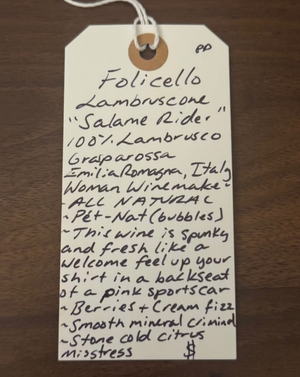 PP
Folicello
Lambruscone
"Salame Rider"
100% Lambrusco
Grasparossa
Emilia Romagna, Italy
Woman Winemaker
~ALL NATURAL
~Pét-Nat (bubbles)
~This wine is spunky
and fresh like a
welcome feel up your
shirt in a backseat
of a pink sportscar
~Berries + Cream fizz
~Smooth mineral criminal
~Stone cold citrus
misstress $